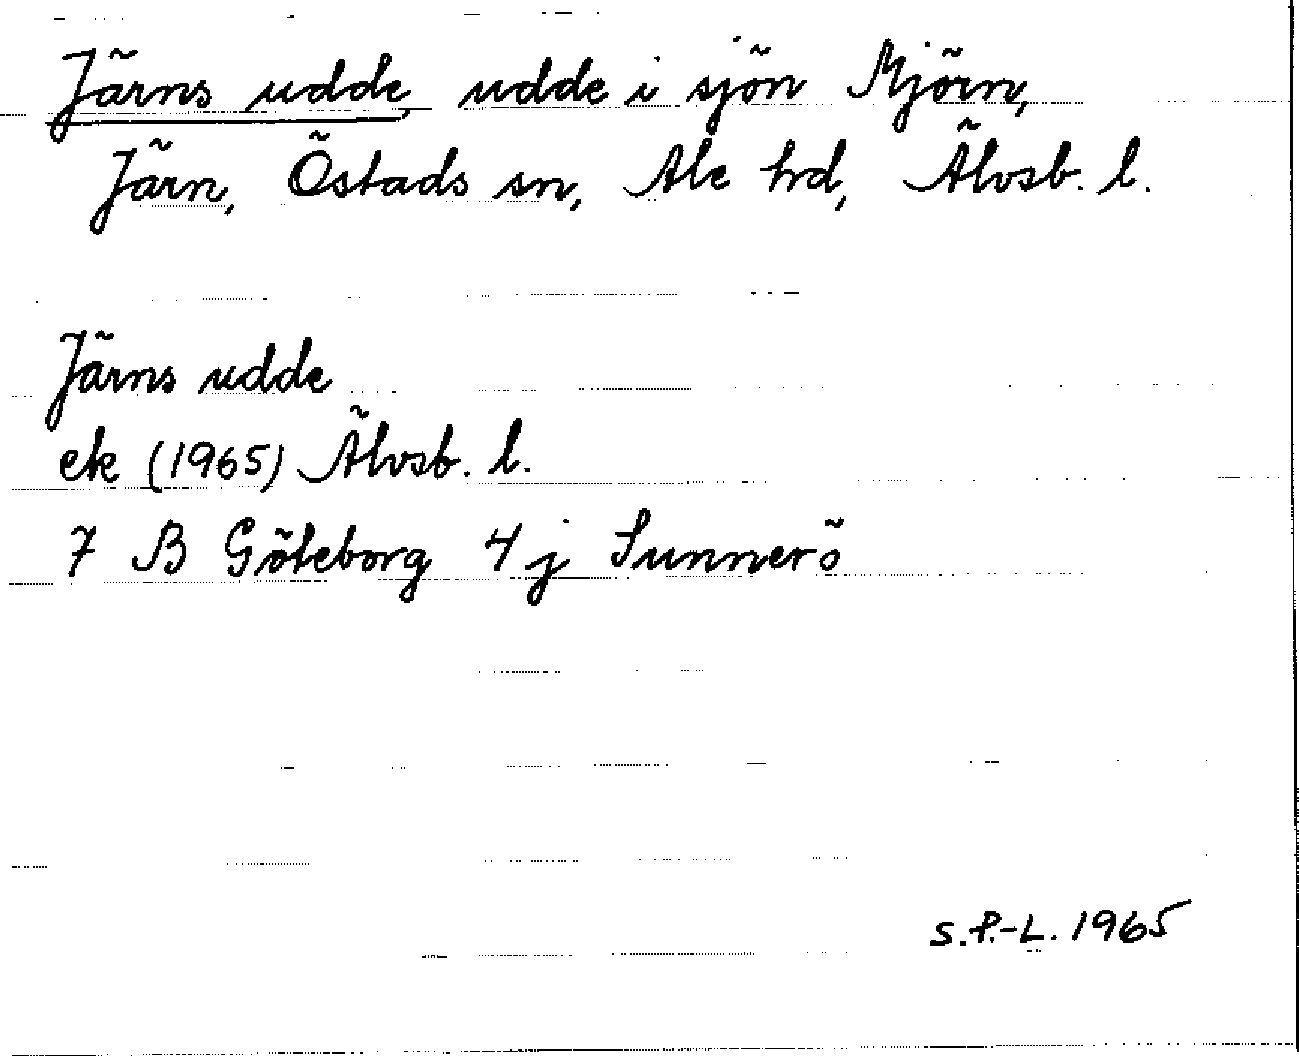 Järns udde, udde i sjön Mjörn,
Järn, Östads sn, Ale hrd, Älvsb. l.
Järns udde
ek (1965) Älvsb. l.
7 B Göteborg 4 j Sunnerö
S.P.-L. 1965